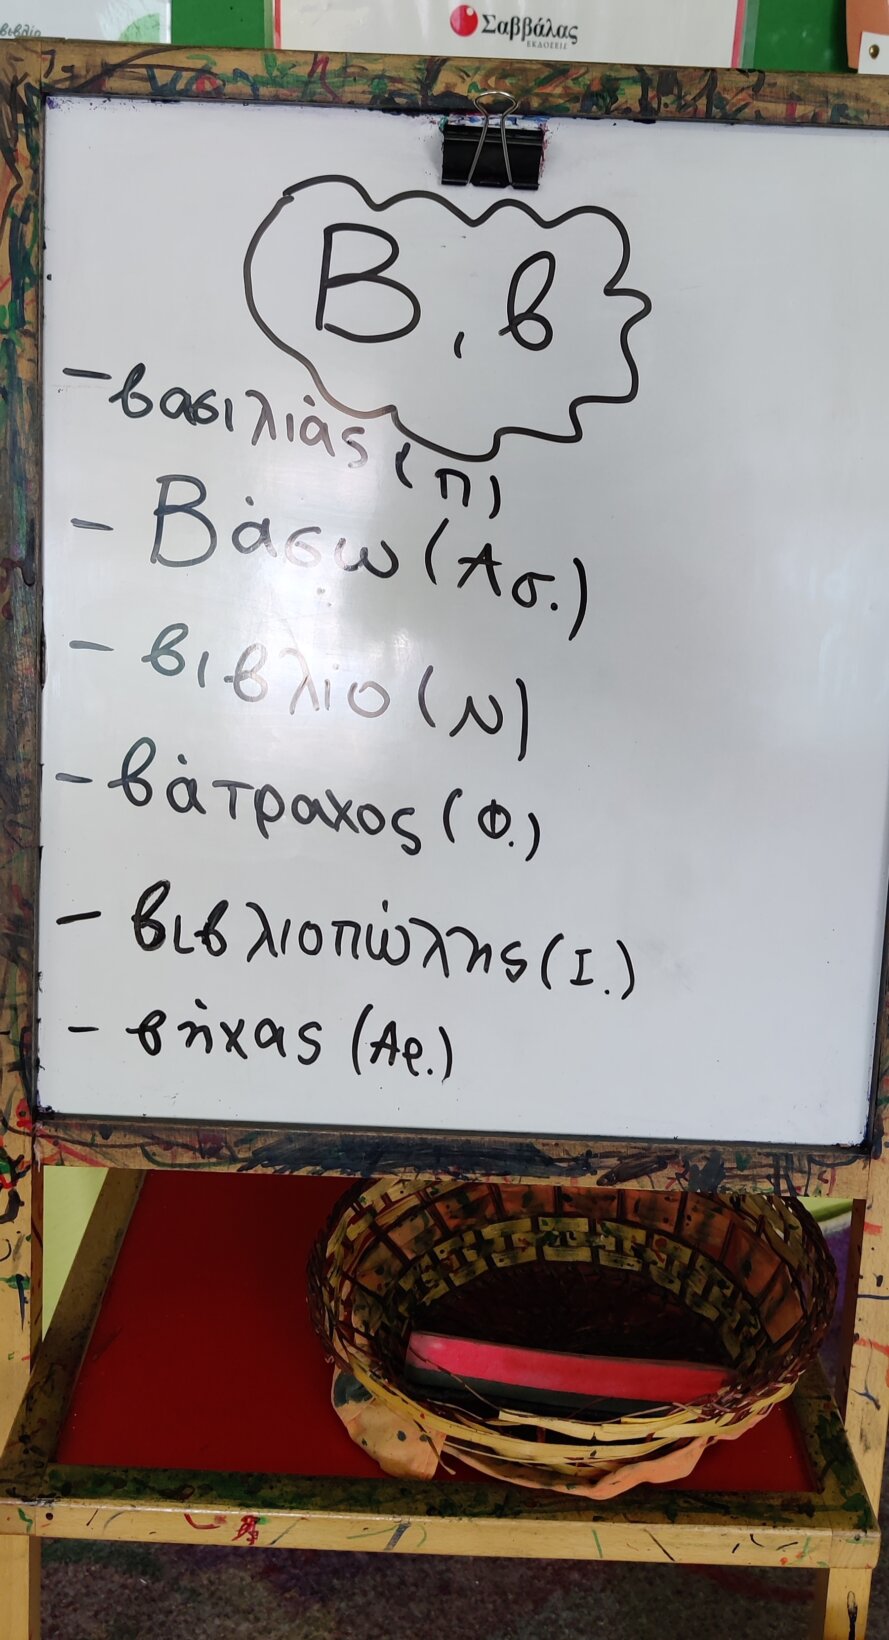 βιβλίο
Σαββάλας
ΕΚΔΟΣΕΙΣ
Β, β
- βασιλιάς (π)
- Βάσω (Ασ.)
- βιβλίο (Ν)
- βάτραχος (Φ.)
- βιβλιοπώλης (Ι.)
- βήχας (Αρ.)